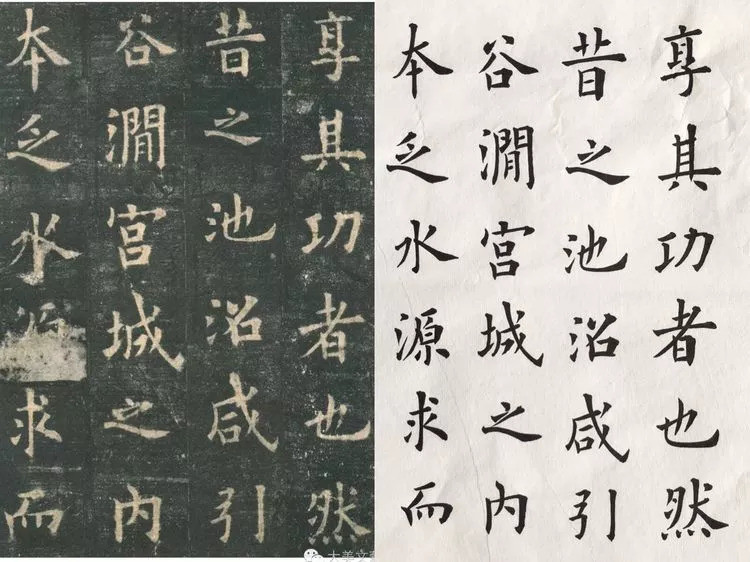 享其功者也然
昔之池沼咸引
谷澗宫城之内
本乏水求而
享其功者也然
昔之池沼咸引
谷澗宫城之内
本乏水源求而